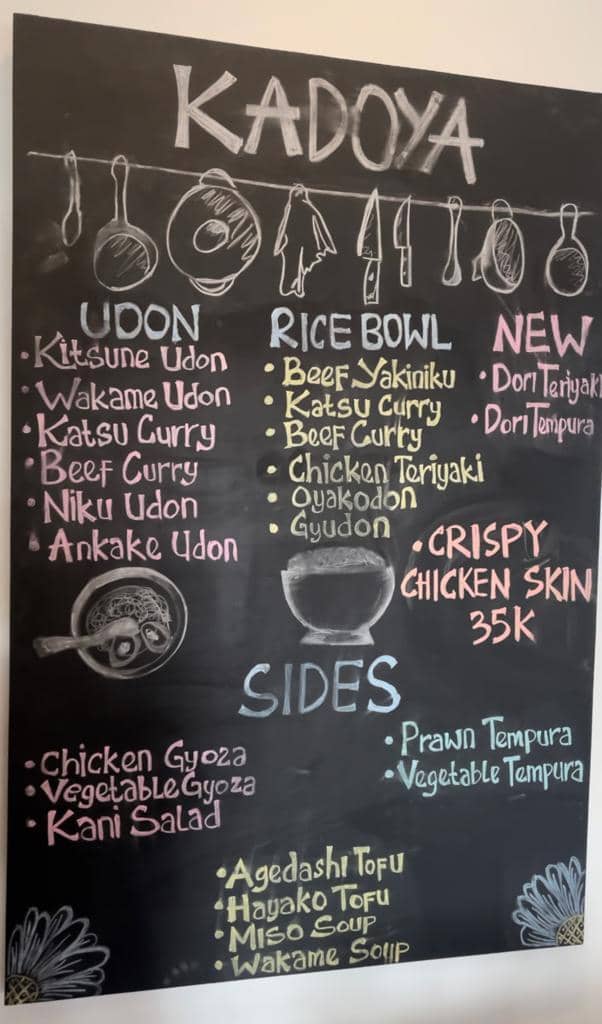 KADOYA
UDON
• Kitsune Udon
• Wakame Udon
• Katsu Curry
• Beef Curry
• Niku Udon
• Ankake Udon
RICE BOWL
• Beef Yakiniku
• Katsu Curry
• Beef Curry
• Chicken Teriyaki
• Oyakodon
• Gyudon
NEW
• Dori Teriyaki
• Dori Tempura
• CRISPY
CHICKEN SKIN
35K
SIDES
• Chicken Gyoza
• Vegetable Gyoza
• Kani Salad
• Prawn Tempura
• Vegetable Tempura
• Agedashi Tofu
• Hayako Tofu
• Miso Soup
• Wakame Soup